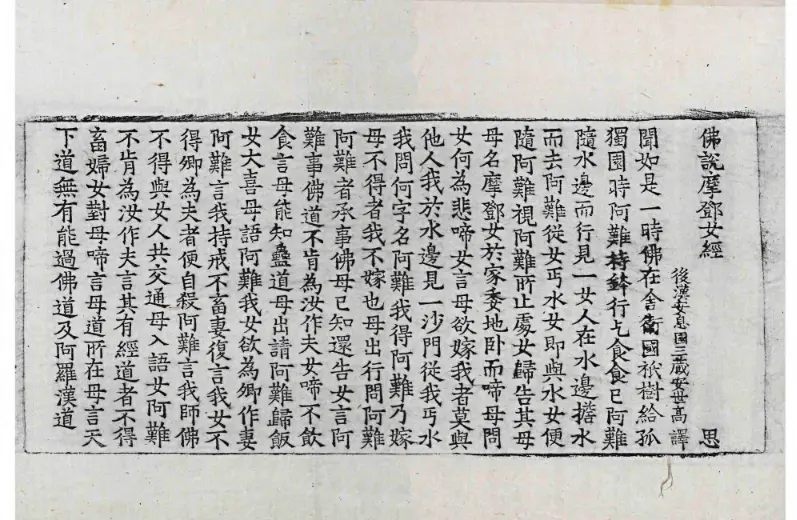 佛說摩鄧女經 思
後漢安息國三藏安世高譯
聞如是一時佛在舍衛國祇樹給孤
獨園時阿難持鉢行乞食食已阿難
隨水邊而行見一女人在水邊擔水
而去阿難從女丐水女即與水女便
隨阿難視阿難所止處女歸告其母
母名摩鄧女於家委地卧而啼母問
女何為悲啼女言母欲嫁我者莫與
他人我於水邊見一沙門從我丐水
我問何字名阿難我得阿難乃嫁
母不得者我不嫁也母出行問阿難
阿難者承事佛母已知還告女言阿
難事佛道不肯為汝作夫女啼不飲
食言母能知蠱道母出請阿難歸飯
女大喜母語阿難我女欲為卿作妻
阿難言我持戒不畜妻復言我女不
得卿為夫者便自殺阿難言我師佛
不得與女人共交通母入語女阿難
不肯為汝作夫言其有經道者不得
畜婦女對母啼言母道所在母言天
下道無有能過佛道及阿羅漢道